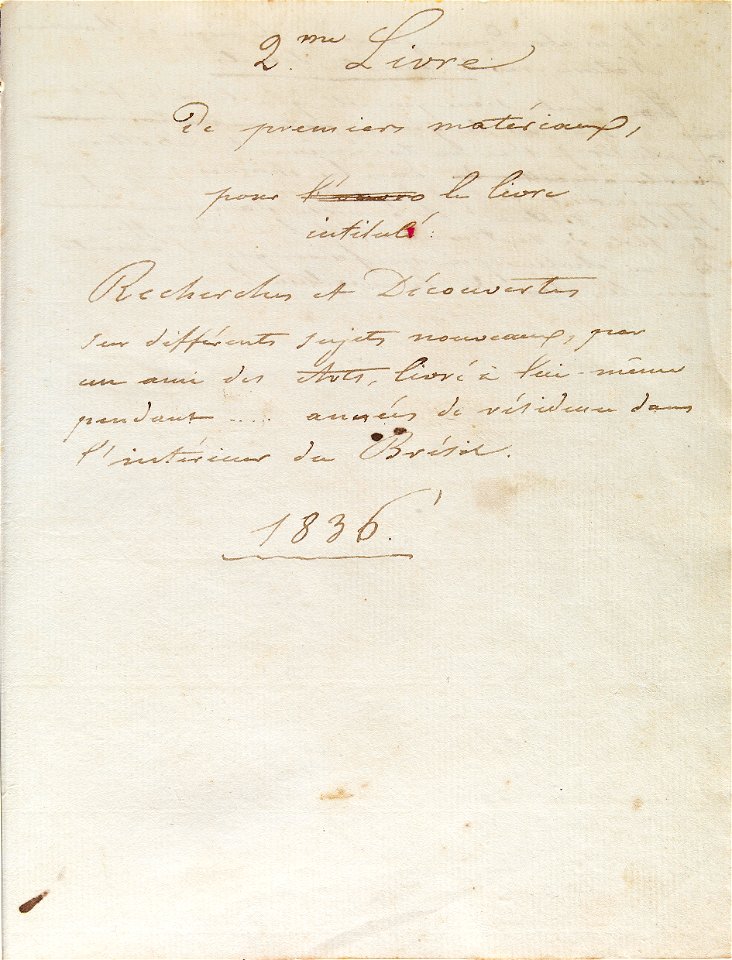 2.me Livre
De premiers matériaux,
pour le livre
intitulé:
Recherches et Découvertes
sur différents sujets nouveaux, par
un ami des Arts, livré à lui-même
pendant ..... années de résidence dans
l'intérieur du Brésil.
1836.